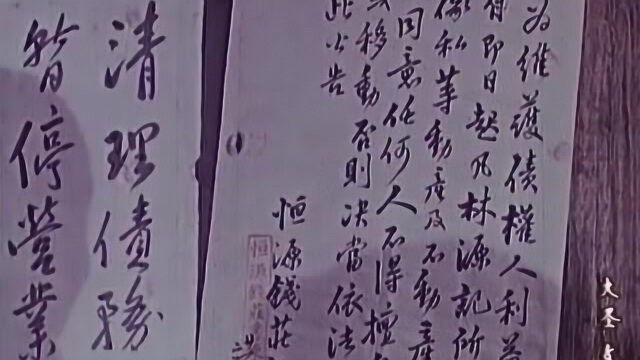 為維護債權人利
即日起凡林源記所
傢私等動產及不動產
同意任何人不得擅
或移動否則決當依法
此公告
恒源錢莊
清理債務
暫停營業
大圣